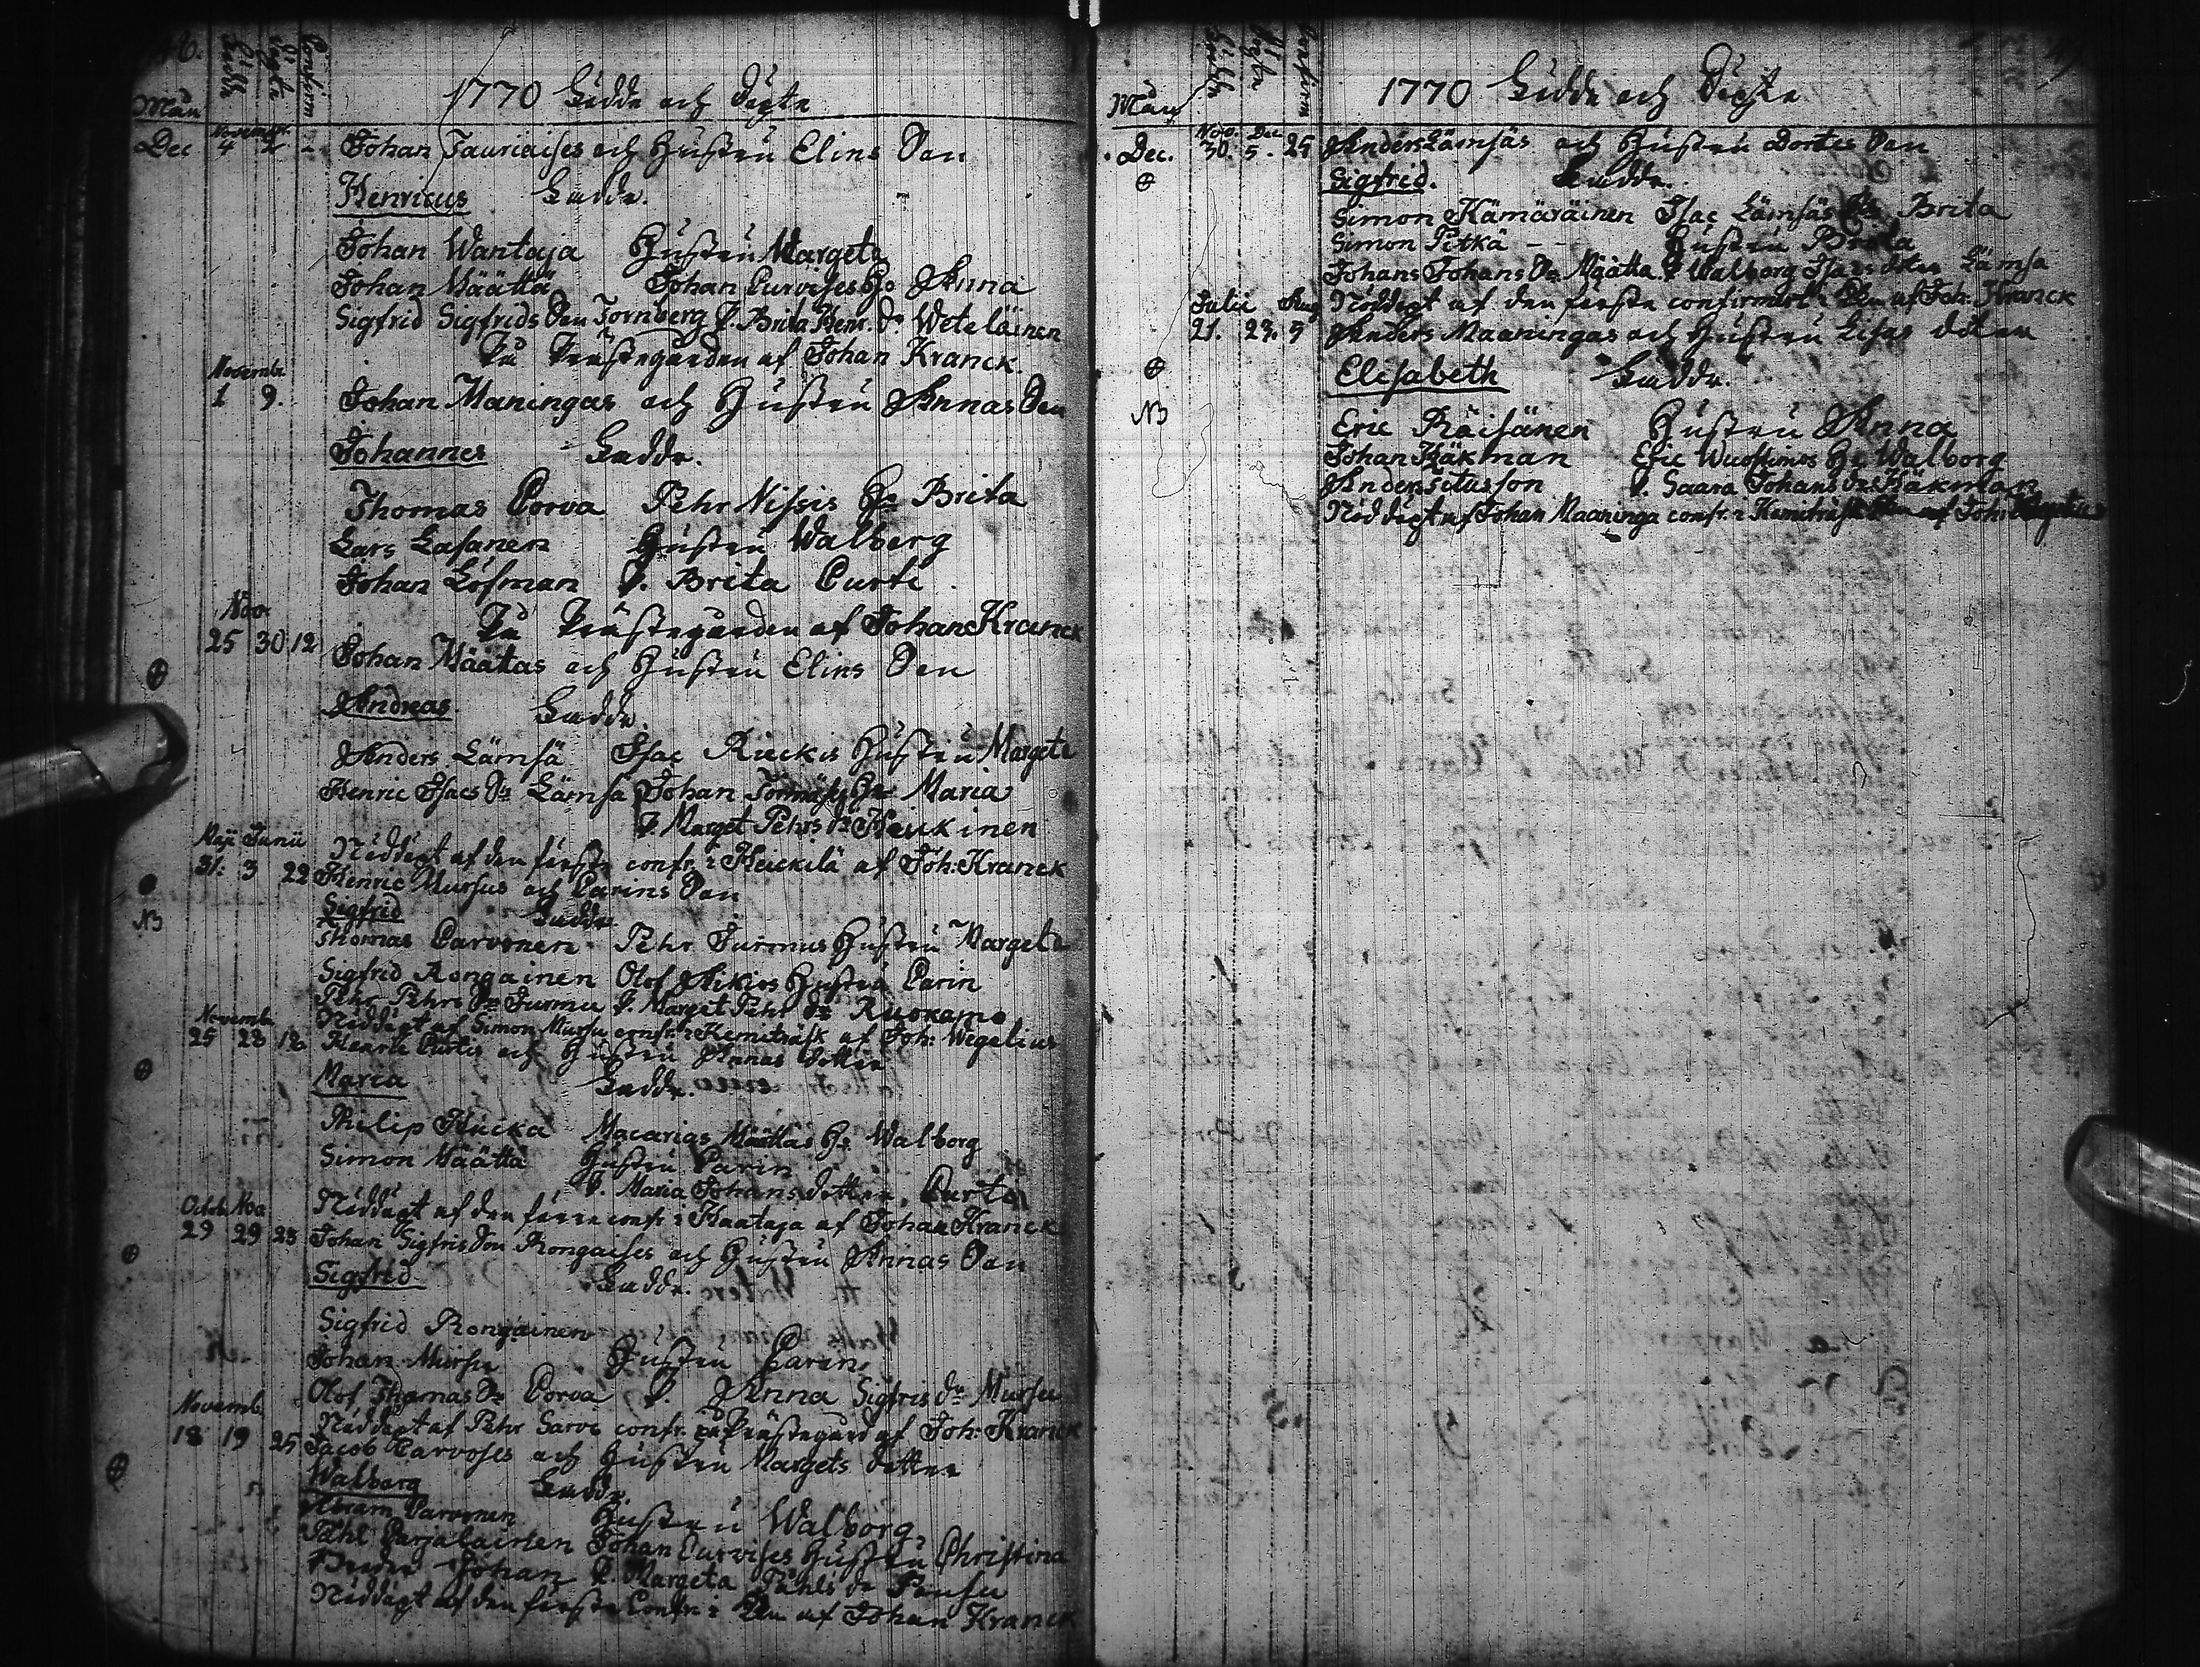 48.
Födde Döpte Confirm
Mån 1770 Födde och Döpte
Novembr.
Dec 4 2 - Johan Jauriaises och Hustru Elins Son
Henricus Faddr.
Johan Wantaja Hustru Margeta
Johan Määttä Johan Curvises Ho Anna
Sigfrid Sigfrids Son Tornberg P. Brita Henr. Dr Weteläinen
På Prästegården af Johan Kranck.
Novembr.
1 9. Johan Maningas och Hustru Annas Son
Johannes Faddr.
Thomas Corva Pehr Nissis Ho Brita
Lars Lasanen Hustru Walberg
Johan Löfman P. Brita Curti
På Prästegården af Johan Kranck
Nov.
25 30 12 Johan Määtas och Hustru Elins Son
Andreas Faddr.
Anders Lämsä Isac Rieckis Hustru Margeta
Henric Isacs Sn Lämsa Johan Hu Maria
P. Marget Pehrs dr Heickinen
Maji Junii Nöddöpt af den förste confr. i Heickilä af Joh: Kranck
31. 3 22 Henric Mursus och Carins Son
NB Sigfrid Faddr
Thomas Carvonen Pehr Jurmus Hustru Margeta
Sigfrid Rongainen Olof Aikios Hustru Carin
Pehr Pehrs Sn Jurmu P. Marget Pehr dr Ruokamo
Novembr. Nöddöpt af Simon Mursu confr. i Kemiträsk af Joh: Wegelius
25 28 12 Henric Curtis och Hustru Annas dotter
Maria Faddr.
Philip Hucka Macarias Määttas Ho Walborg
Simon Määttä Hustru Carin
P. Maria Johans dotter, Curti
Octob. Nov Nöddöpt af den förre confr. i Haataja af Johan Kranck
29 29 23 Johan Sigfrisson Rongaises och Hustru Annas Son
Sigfrid Faddr.
Sigfrid Rongainen
Johan Mursu Hustru Carin
Olof Thomas Sn Corva P. Anna Sigfris dr Mursu
Novemb. Nöddöpt af Pehr Sarve confr. på Prästegård af Joh: Kranck
18 19 25 Jacob Carvoses och Hustru Margets dotter
Walborg Faddr.
Abram Carvonen Hustru Walborg
Påhl Carjalainen Johan Curvises Hustru Christina
Johan P. Margeta Påhls dr
Nöddöpt af den förste Confr. i af Johan Kranck
Födde Döpte Confirm
Mån 1770 Födde och Döpte
Nov. Dec
Dec. 30. 5. 25 Anders Lämsäs och Hustru Dortes Son
Sigfrid. Faddr.
Simon Kämäräinen Isac Lämsäs Brita
Simon Pitkä - - Hustru Brita
Johans Johans Sn Määtta. P Walborg Isacs doter Lämsa
Julii Aug Nöddöpt af den förste confirmert i af Joh: Kranck
21. 23. 9 Anders Maaningas och Hustru Lisas doter
Elisabeth Faddr.
NB Eric Räisänen Hustru Anna
Johan Käkman Hu Walborg
P. Saara Johans Dr Käkman
Nöddöpt af Johan Maaninga confr. i Kemiträsk af Joh: